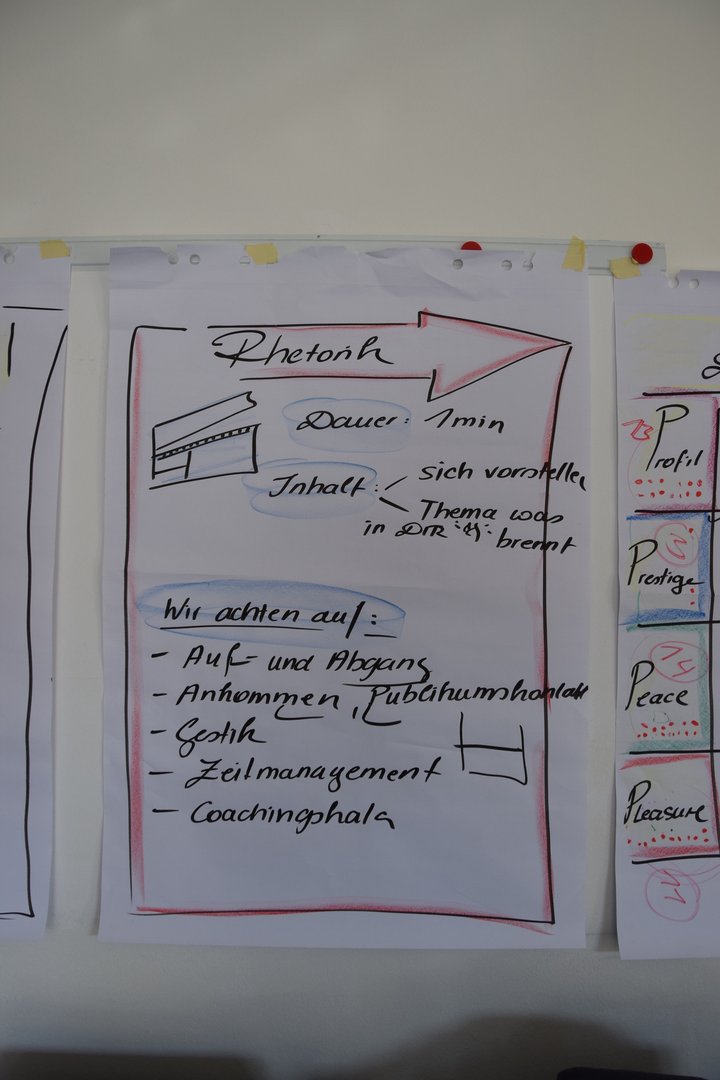 Rhetorik
Dauer: 1min
Inhalt: sich vorstellen
Thema was
in DIR brennt
Wir achten auf:
- Auf- und Abgang
- Ankommen, Publikumskontakt
- Gestik
- Zeitmanagement
- Coachingphala
Profil
13
Prestige
Peace
14
Pleasure
11